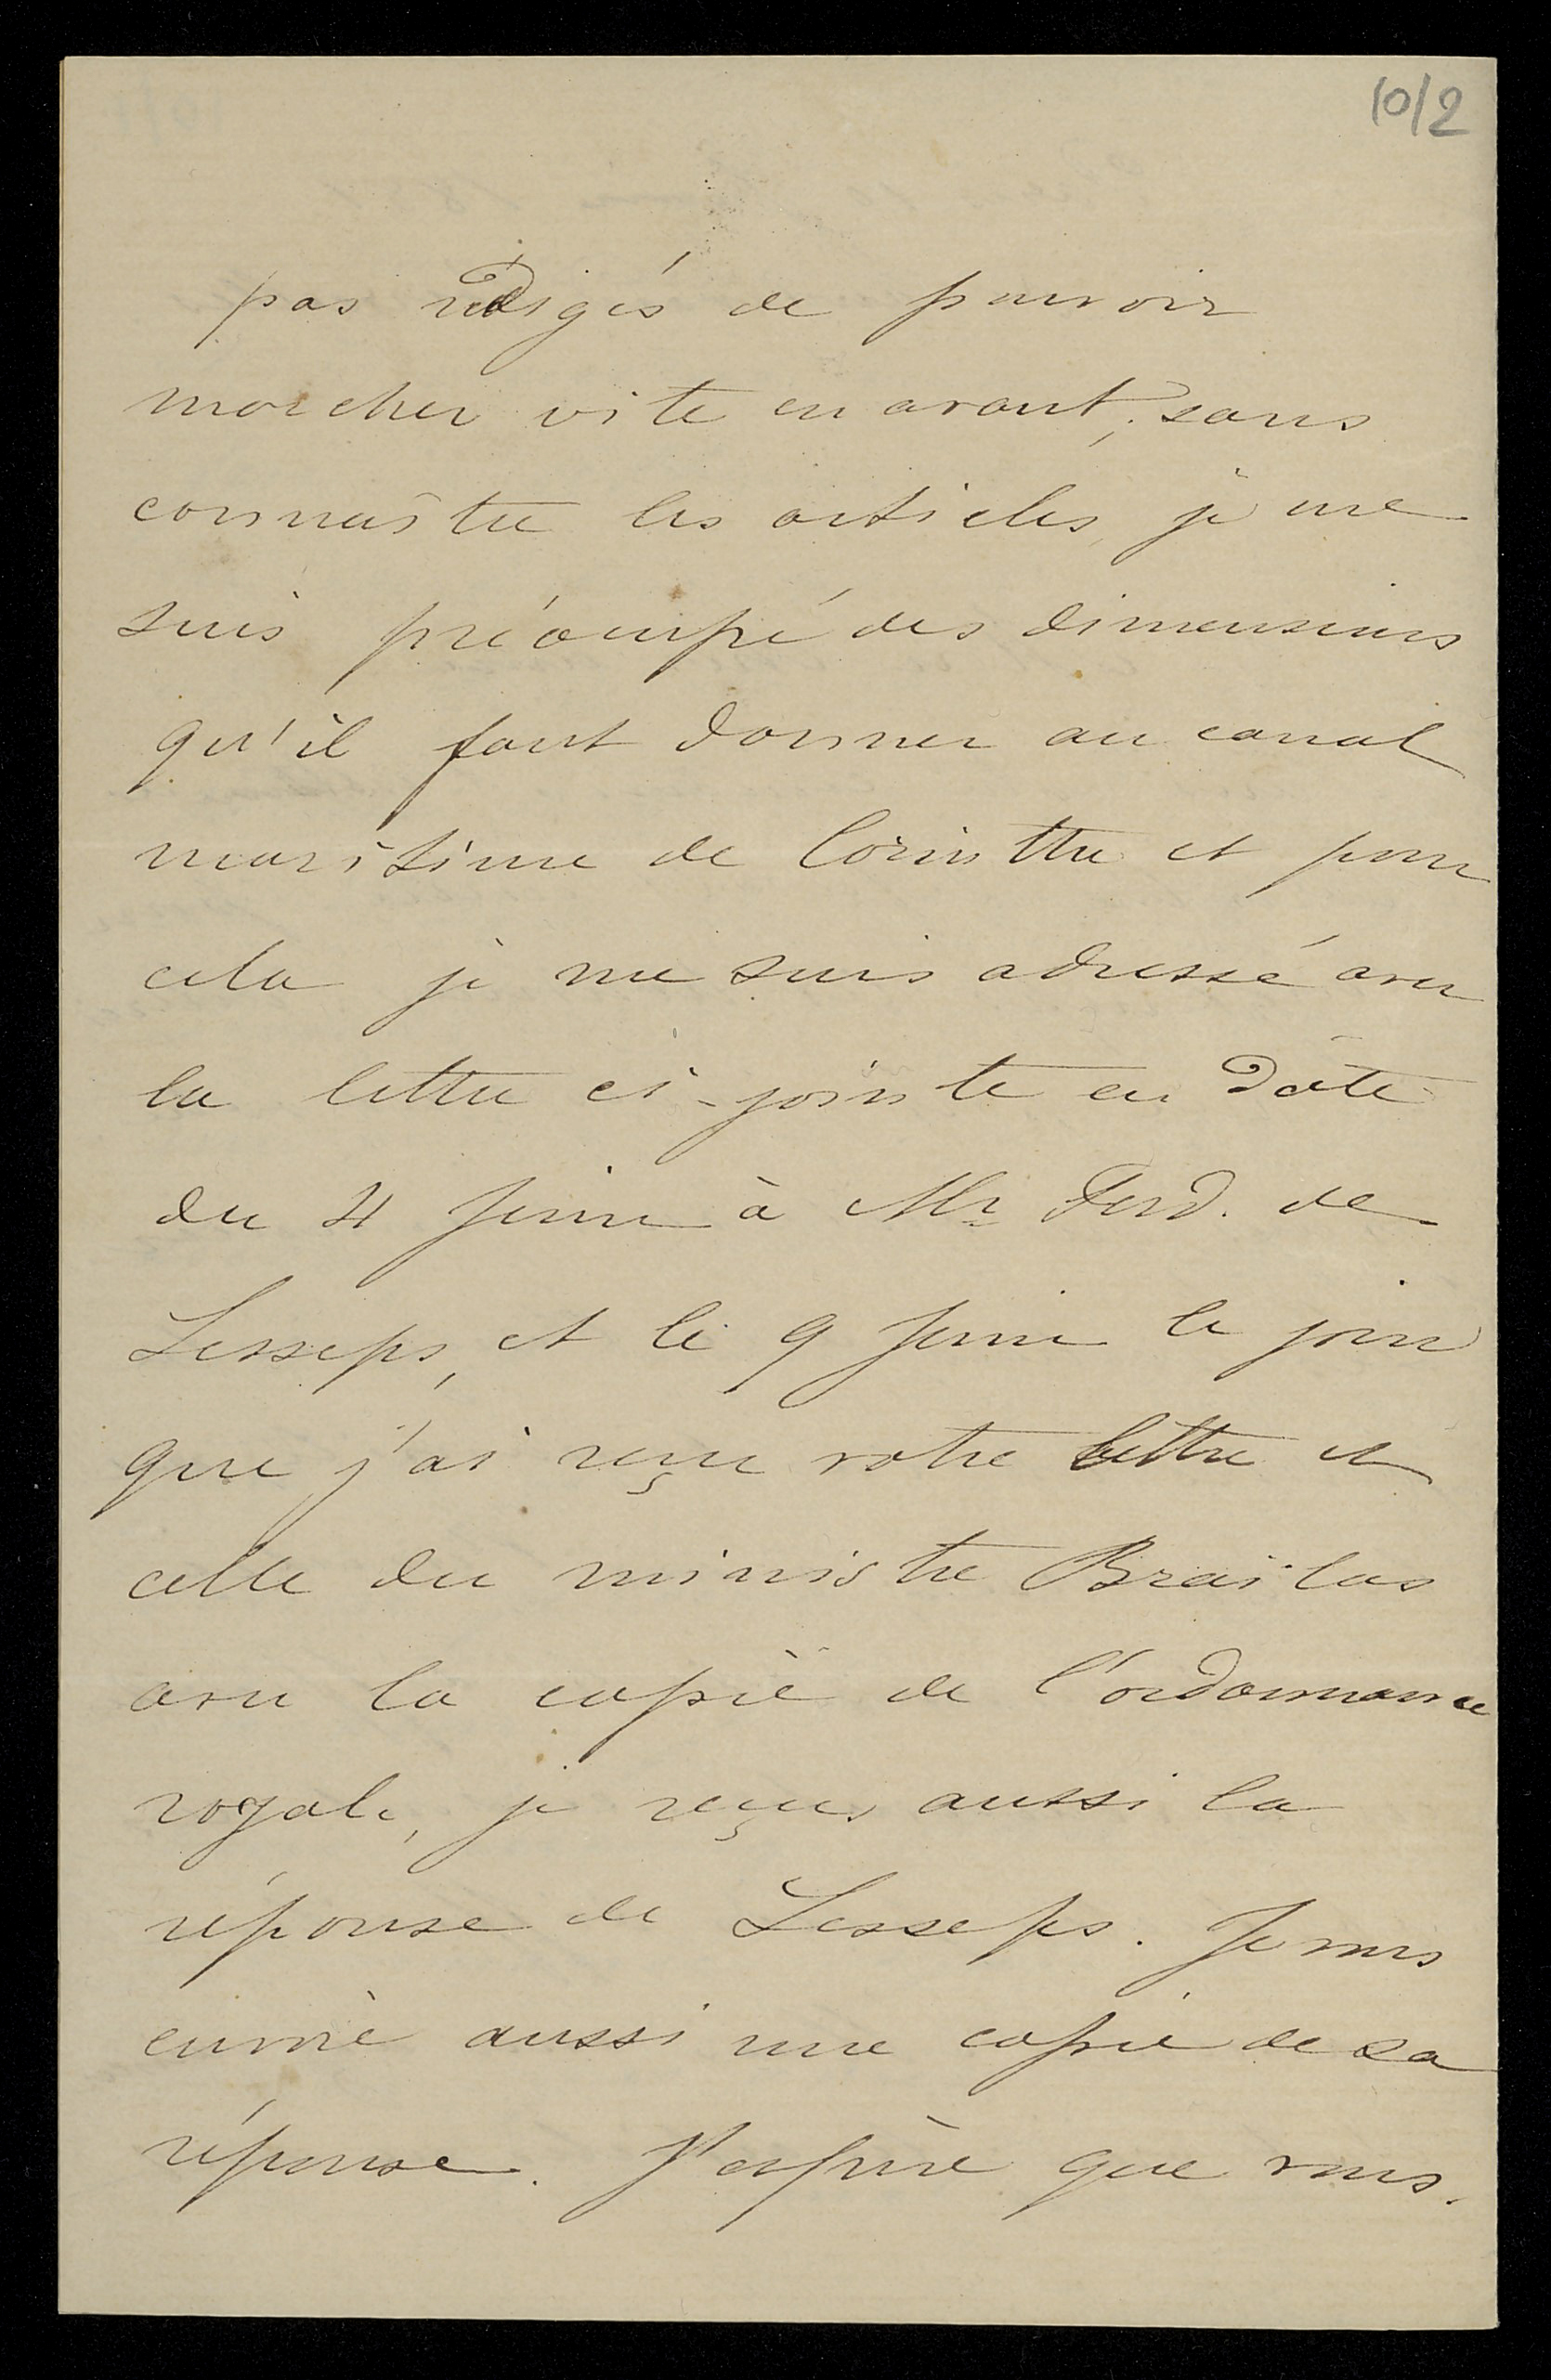 10/2
pas rédigés de pouvoir
marcher vite en avant; sans
connaître les articles, je me
suis préoccupé des dimensions
qu'il faut donner au canal
maritime de Corinthe et pour
cela je me suis adressé avec
la lettre ci-jointe en date
du 4 Juin à Mr Ferd. de
Lesseps, et le 9 Juin le jour
que j'ai reçu votre lettre et
celle du ministre Braïlas
avec la copie de l'ordonnance
royale, je reçus aussi la
réponse de Lesseps. Je vous
envoie aussi une copie de sa
réponse. J'espère que vous